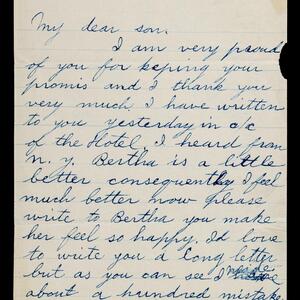 My dear son.
I am very proud
of you for keping your
promis and I thank you
very much. I have written
to you yesterday in c/c
of the Hotel, I heard from
N. Y. Bertha is a little
better consequently I feel
much better now please
write to Bertha you make
her feel so happy. I'd love
to write you a long letter
but as you can see I made
about a hundred mistake